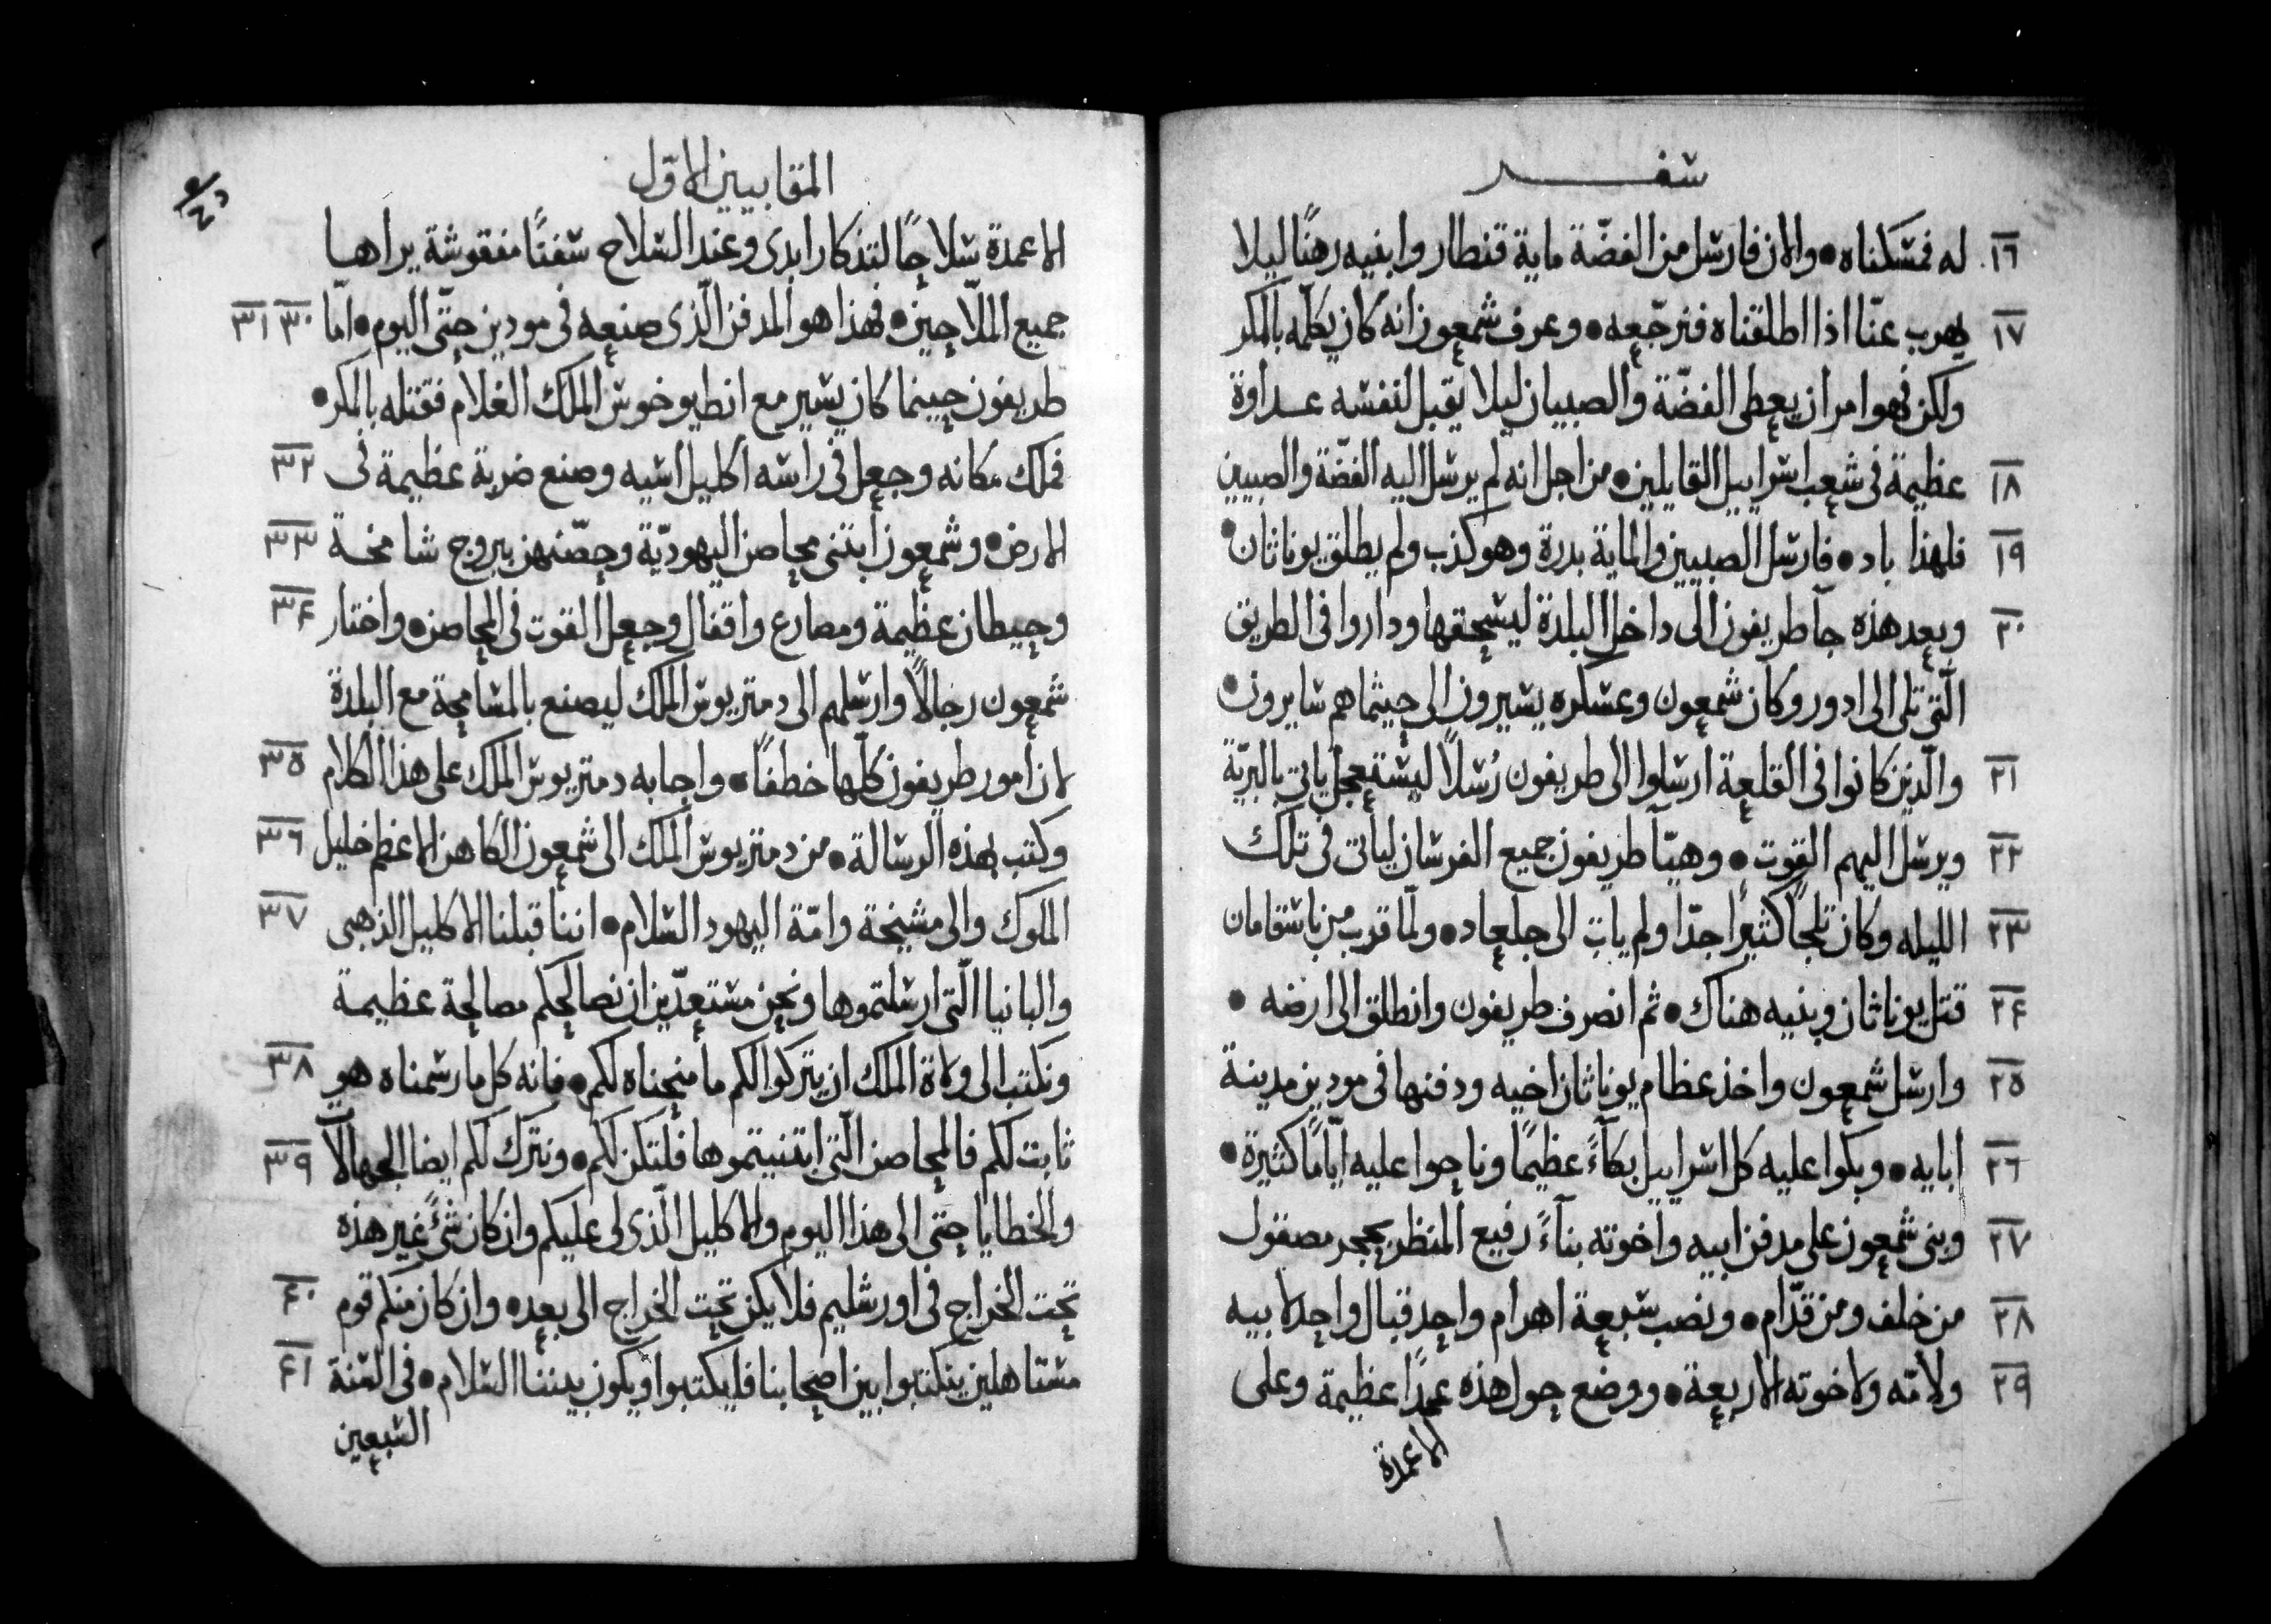 سفر
١٦ له فمسكناه • والان فارسل من الفضّة ماية قنطار وابنيه رهنًا ليلا
١٧ يهرب عنّا اذا اطلقناه فنرجّعه • وعرف شمعون انه كان يكلّمه بالمكر
ولكن فهو امر ان يعطى الفضّة والصبيان ليلا يقبل لنفسه عداوة
١٨ عظيمة فى شعب اسراييل القايلين • من اجل انه لم يرسل اليه الفضّة والصبيين
١٩ فلهذا باد • فارسل الصبيين والماية بدرة وهو كذب ولم يطلق يوناثان •
٢٠ وبعد هذه جآ طريفون الى داخل البلدة ليسحقها وداروا فى الطريق
الّتى تلى الى ادور وكان شمعون وعسكره يسيرون الى حيثما هم سايرون •
٢١ والّذين كانوا فى القلعة ارسلوا الى طريفون رُسلاً ليستعجل ياتى بالبريّة
٢٢ ويرسل اليهم القوت • وهيّآ طريفون جميع الفرسان لياتى فى تلك
٢٣ الليله وكان تلجًا كثيرًا جدّا ولم يات الى جلعاد • ولمّا قرب من باسقامان
٢٤ قتل يوناثان وبنيه هناك • ثم انصرف طريفون وانطلق الى ارضه •
٢٥ وارسل شمعون واخذ عظام يوناثان اخيه ودفنها فى مودين مدينة
٢٦ ابايه • وبكوا عليه كل اسراييل بكآءً عظيمًا وناحوا عليه ايّامًا كثيرة •
٢٧ وبنى شمعون على مدفن ابيه واخوته بنآءً رفيع المنظر بحجر مصقول
٢٨ من خلف ومن قدّام • ونصب سبعة اهرام واحد قبال واحد لابيه
٢٩ ولامّه ولاخوته الاربعة • ووضع حول هذه عمدًا عظيمة وعلى
الاعمدة
المقابيين الاوّل
الاعمدة سلاحًا لتذكار ابدى وعند السلاح سفنًا منقوشة يراها
جميع الملّاحين • فهذا هو المدفن الّذى صنعه فى مودين حتّى اليوم • امّا ٣٠ ٣١
طريفون حينما كان يسير مع انطيوخوس الملك الغلام فقتله بالمكر •
فملك مكانه وجعل فى راسه اكليل اسيه وصنع ضربة عظيمة فى ٣٢
الارض • وشمعون ابتنى محاصن اليهوديّة وحصّنهن ببروج شامخة ٣٣
وحيطان عظيمة ومصارع واقفال وجعل القوت فى المحاصن • واختار ٣٤
شمعون رجالاً وارسلهم الى دمتريوس الملك ليصنع بالمسامحة مع البلدة
لان امور طريفون كلّها خطفًا • واجابه دمتريوس الملك على هذا الكلام ٣٥
وكتب بهذه الرسالة • من دمتريوس الملك الى شمعون الكاهن الاعظم خليل ٣٦
الملوك والى مشيخة وامّة اليهود السلام • اننا قبلنا الاكليل الذهبى ٣٧
والبانيا الّتى ارسلتموها ونحن مستعدّين ان نصالحكم مصالحة عظيمة
ونكتب الى ولاة الملك ان يتركوا لكم ما منحناه لكم • فانه كل ما رسمناه هو ٣٨
ثابت لكم فالمحاصن الّتى ابتنيتموها فلتكن لكم • ونترك لكم ايضا الجهالآ ٣٩
والخطايا حتى الى هذا اليوم والاكليل الّذى لى عليكم وان كان شئً غير هذه
تحت الخراج فى اورشليم فلا يكن تحت الخراج الى بعد • وان كان منكم قوم ٤٠
مستاهلين ينكتبوا بين اصحابنا فليكتبوا ويكون بيننا السلام • فى السنة ٤١
السبعين